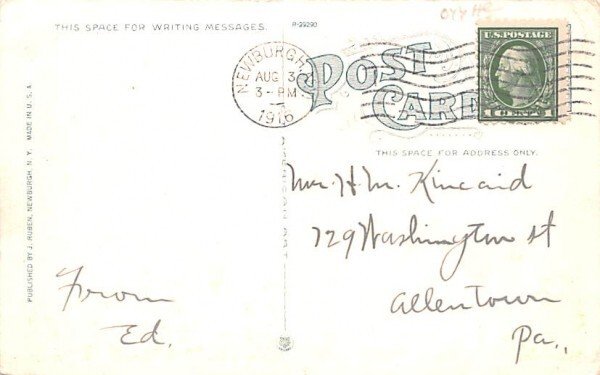 THIS SPACE FOR WRITING MESSAGES.
R-29290
NEWBURGH
AUG 3
3-PM
1916
POST CARD
U.S. POSTAGE
1 CENT 1
THIS SPACE FOR ADDRESS ONLY.
Mr. H. M. Kincaid
729 Washington st
Allentown
Pa.,
From
Ed.
PUBLISHED BY J. RUBEN, NEWBURGH, N. Y. MADE IN U. S. A.